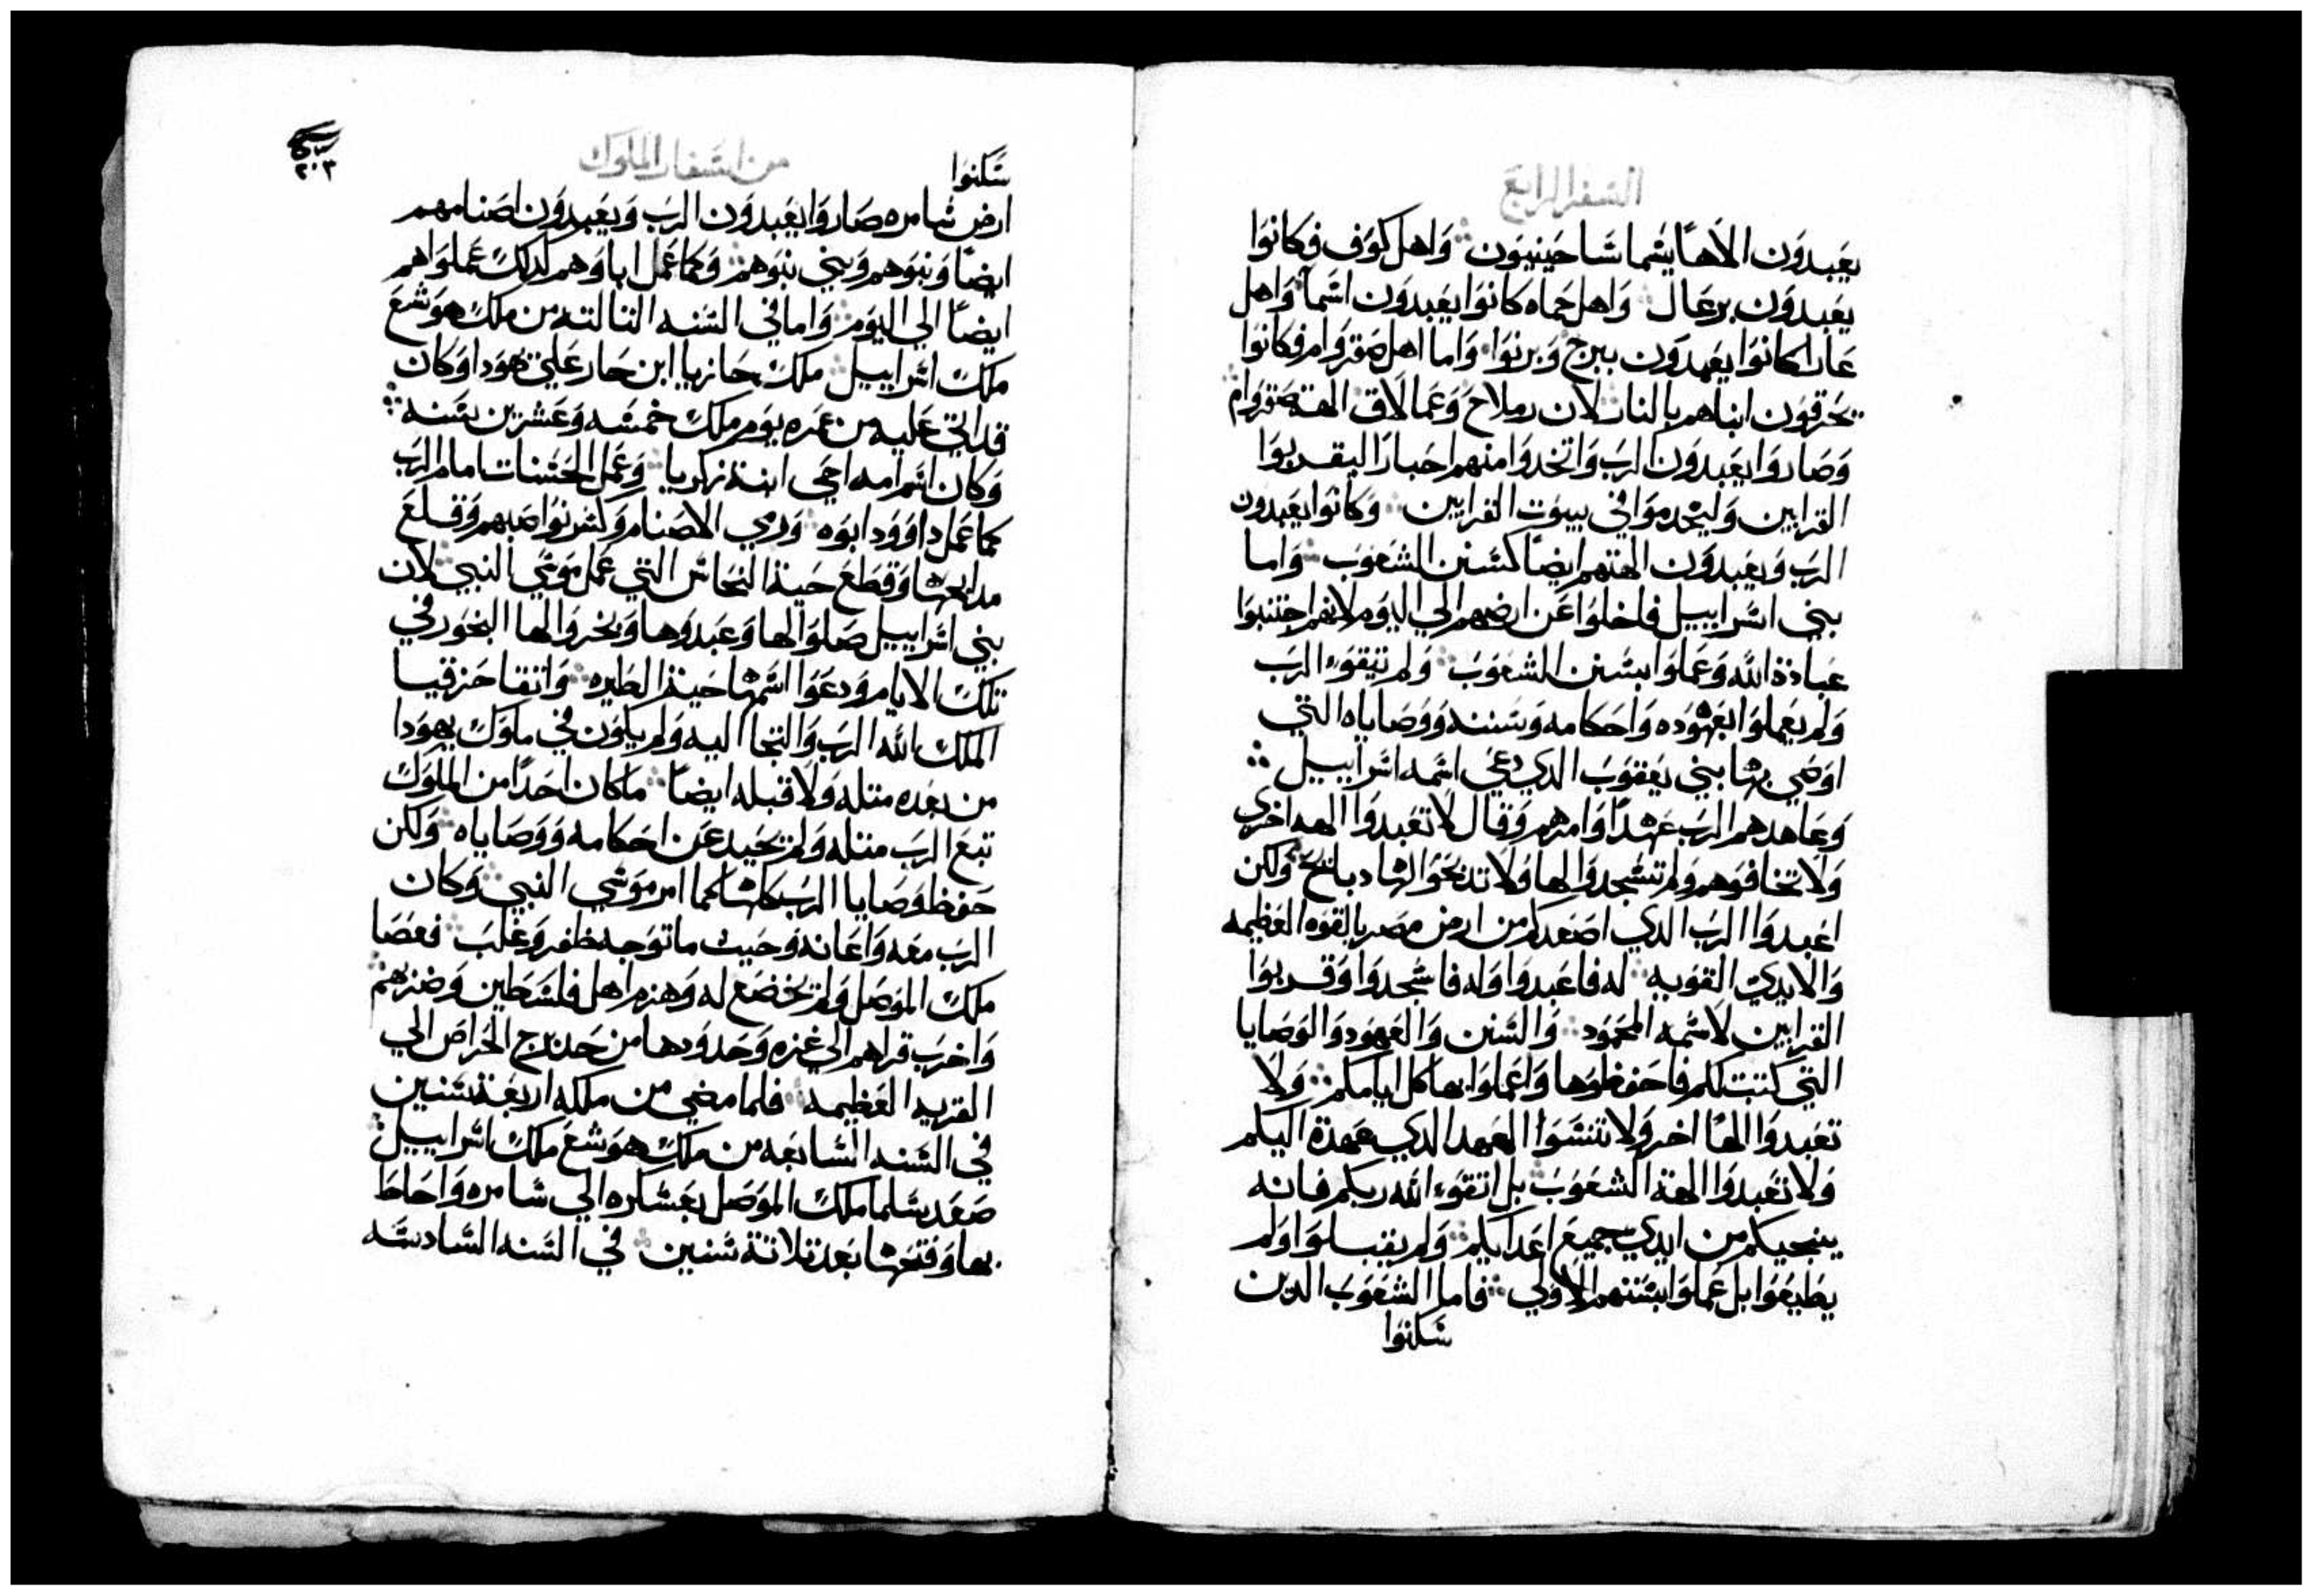 السفر الرابع
يعبدون الاهًا يسما شاحينيون وَاهل كوَف فكانوَا
يعبدوَن برعَال وَاهل حَماه كانوَا يعبدوَن اسَما وَاهل
عَارا كانوَا يعَبدوَن ببرج وَبرنوَا وَاما اهل صَقروَام فكانوَا
يحَرقوَن ابناهم بالنار لان رملاح وَعمالاق الهة صَقروَام
وَصَاروَا يعَبدوَن الربَ وَاتخدوَا منهم احَبارًا ليقربوَا
القرابين وَليخدموَا في بيوَت القرابين وَكانوَا يعَبدون
الربَ وَيعَبدوَن الهتهم ايضًا كسَنن الشعَوَبَ وَاما
بني اسَراييل فاخلوَا عَن ارضهم الي اليوَم لانهم اجتنبوَا
عَبادة الله وَعَملوَا بسَنن الشعَوَبَ وَلم يتقوَا الربَ
وَلم يعَملوَا بعَهوَده وَاحَكامه وَسَننه وَوَصَاياه التي
اوَصَي بها بني يعَقوَبَ الدي دعَي اسَمه اسَراييل
وَعَاهدهم الربَ عَهدًا وَامرهم وَقال لا تعَبدوَا الهه اخري
وَلا تخافوَهم وَلم تسَجدوَا لها وَلا تدبحَوَا لها دبايحَ وَلكن
اعَبدوَا الربَ الدي اصَعَدكم من ارض مصَر بالقوَه العَظيمه
وَالايدي القوَيه له فاعَبدوَا وَله فاسَجدوَا وَقربوَا
القرابين لاسَمه المحَموَد وَالسَنن وَالعَهوَد وَالوَصَايا
التي كتبت لكم فاحَفظوَها وَاعَملوَا بها كل ايامكم وَلا
تعَبدوَا الهًا اخر وَلا تنسَوَا العَهد الدي عَهدة اليكم
وَلا تعَبدوَا الهة الشعَوَبَ بل اتقوَا الله ربكم فانه
ينجيكم من ايدي جميعَ اعَدايكم وَلم يقبلوَا وَلم
يطيعَوَا بل عَملوَا بسَننهم الاوَلي فاما الشعَوَبَ الدين
سَكنوَا
٢٠٣
من اسَفار الملوَك
سَكنوَا
ارض شامره صَاروَا يعَبدوَن الربَ وَيعَبدوَن اصَنامهم
ايضًا وَبنوَهم وَبني بنوَهم وَكما عَمل اباوَهم كدلك عَملوَا هم
ايضًا الي اليوَم وَاما في السَنه التالته من ملك هوَشعَ
ملك اسَراييل ملك حَازيا ابن حَار عَلي يهوَدا وَكان
قد اتي عَليه من عَمره يوَم ملك خمسَه وَعَشرين سَنه
وَكان اسَم امه احي ابنة زكريا وَعَمل الحَسَنات امام الربَ
كما عَمل داوَوَد ابوَه وَرمي الاصَنام وَكسَر نوَاصَبهم وَقلعَ
مدابحَها وَقطعَ حَية النحَاس التي عَمل موَسَي النبي لان
بني اسَراييل صَلوَا لها وَعَبدوَها وَبخروَا لها البخوَر في
تلك الايام وَدعَوَا اسَمها حَية الطيره وَاتقا حَزقيا
الملك الله الربَ وَالتجا اليه وَلم يكوَن في ملوَك يهوَدا
من بعَده متله وَلا قبله ايضًا ما كان احَدًا من الملوَك
تبعَ الربَ متله وَلم يحَيد عَن احَكامه وَوَصَاياه وَلكن
حَفظ وَصَايا الربَ كلها كما امر موَسَي النبي وَكان
الربَ معَه وَاعَانه وَحَيت ما توَجه ظفر وَغلبَ فعَصَا
ملك الموَصَل وَلم يخضعَ له وَهزم اهل فلسَطين وَضربهم
وَاخربَ قراهم الي غزه وَحَدوَدها من حَد برج الحَراصَ الي
القريه العَظيمه فلما مضي من ملكه اربعَة سَنين
في السَنه السَابعَه من ملك هوَشعَ ملك اسَراييل
صَعَد سَلما ملك الموَصَل بعَسَاكره الي شامره وَاحَاط
بها وَفتحَها بعَد تلاتة سَنين في السَنه السَادسَه